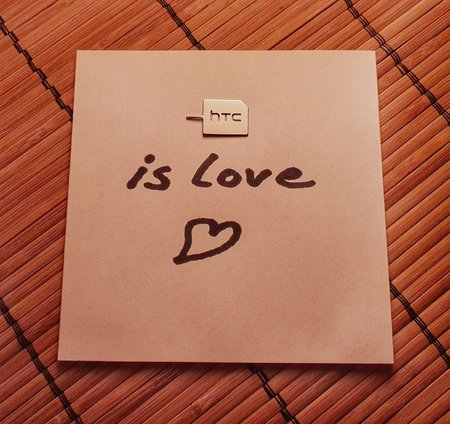 hTC
is Love